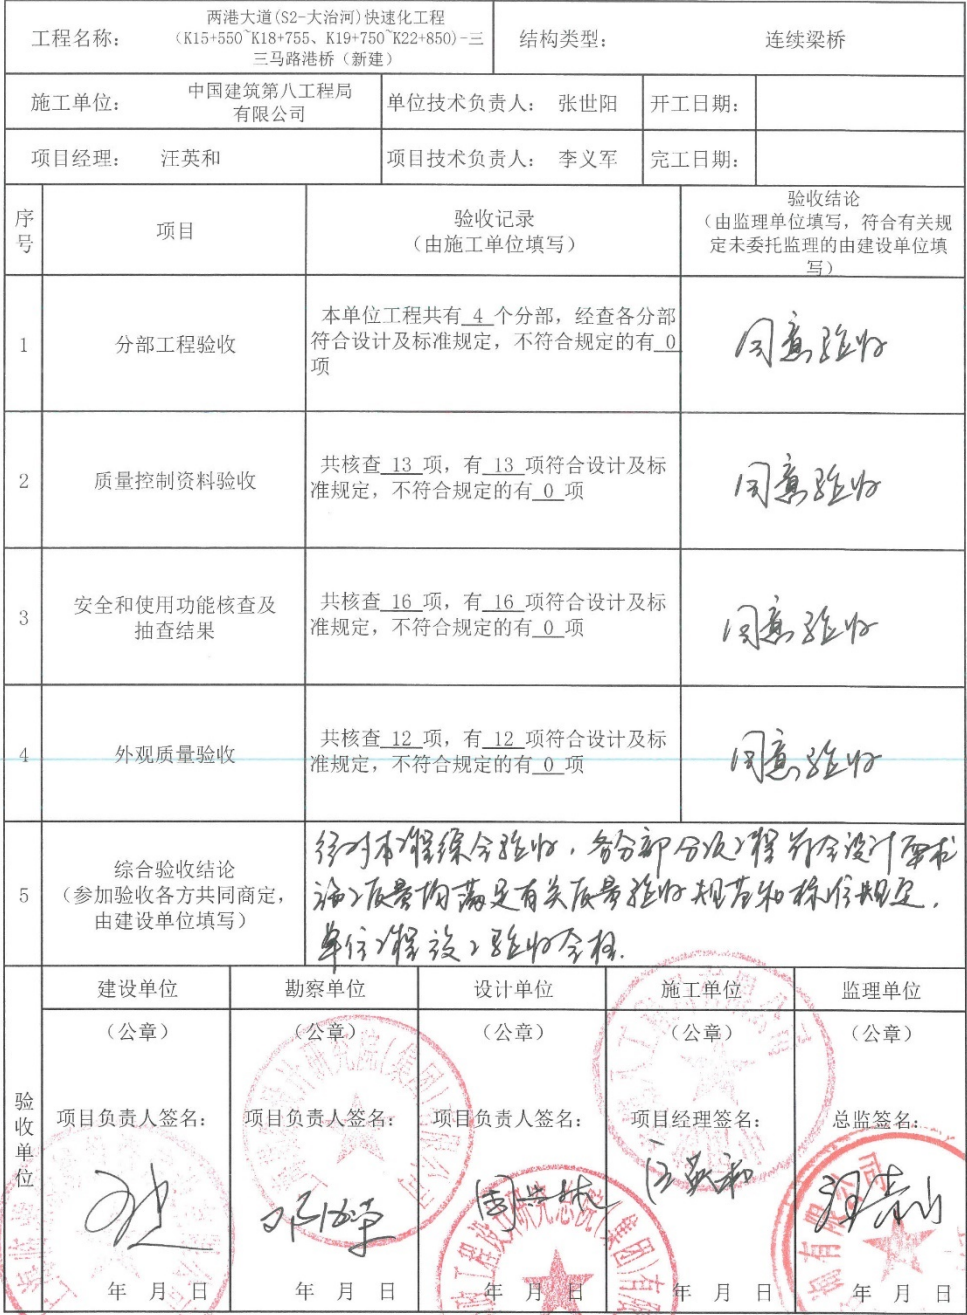 工程名称：
两港大道(S2-大治河)快速化工程
(K15+550~K18+755、K19+750~K22+850)-三
三马路港桥（新建）
结构类型：
连续梁桥
施工单位：
中国建筑第八工程局
有限公司
单位技术负责人：
张世阳
开工日期：
项目经理：
汪英和
项目技术负责人：
李义军
完工日期：
序
号
项目
验收记录
（由施工单位填写）
验收结论
（由监理单位填写，符合有关规
定未委托监理的由建设单位填
写）
1
分部工程验收
本单位工程共有 4 个分部，经查各分部
符合设计及标准规定，不符合规定的有 0
项
同意验收
2
质量控制资料验收
共核查 13 项，有 13 项符合设计及标
准规定，不符合规定的有 0 项
同意验收
3
安全和使用功能核查及
抽查结果
共核查 16 项，有 16 项符合设计及标
准规定，不符合规定的有 0 项
同意验收
4
外观质量验收
共核查 12 项，有 12 项符合设计及标
准规定，不符合规定的有 0 项
同意验收
5
综合验收结论
（参加验收各方共同商定，
由建设单位填写）
经对本工程综合验收，各分部分项工程符合设计要求
施工质量均满足有关质量验收规范和标准规定，
单位工程竣工验收合格.
验
收
单
位
建设单位
勘察单位
设计单位
施工单位
监理单位
（公章）
（公章）
（公章）
（公章）
（公章）
项目负责人签名：
项目负责人签名：
项目负责人签名：
项目经理签名：
总监签名：
汪英和
年 月 日
年 月 日
年 月 日
年 月 日
年 月 日